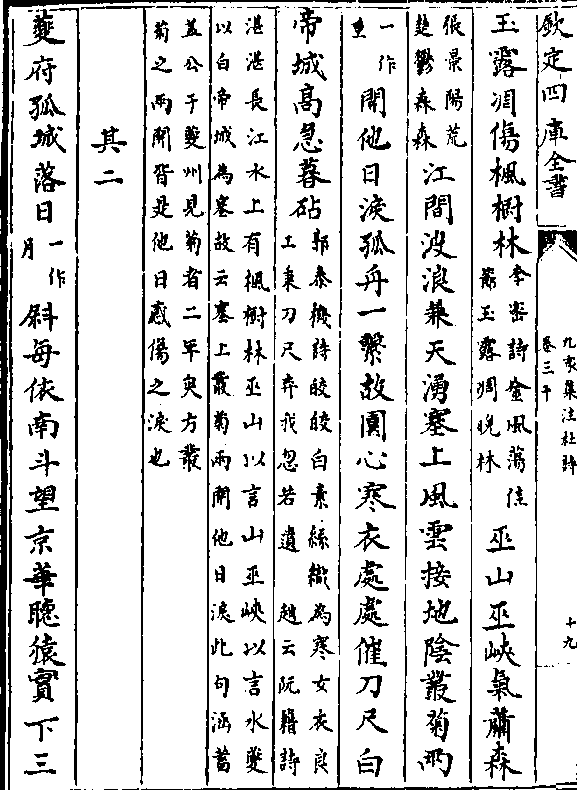 欽定四庫全書
九家集注杜詩
卷三十
十九
玉露凋傷楓樹林
李密詩金風蕩佳
節玉露凋晩林
巫山巫峽氣蕭森
張景陽荒
楚鬱森森
江間波浪兼天湧塞上風雲接地陰叢菊兩
一作
重
開他日淚孤舟一繫故園心寒衣處處催刀尺白
帝城高急暮砧
郭泰機詩皎皎白素絲織為寒女衣良
工秉刀尺弃我忽若遺 趙云阮籍詩
湛湛長江水上有楓樹林巫山以言山巫峽以言水夔
以白帝城為塞故云塞上叢菊兩開他日淚此句涵蓄
蓋公于夔州見菊者二年矣方叢
菊之兩開皆是他日感傷之淚也
其二
夔府孤城落日
一作
月
斜每依南斗望京華聽猿實下三